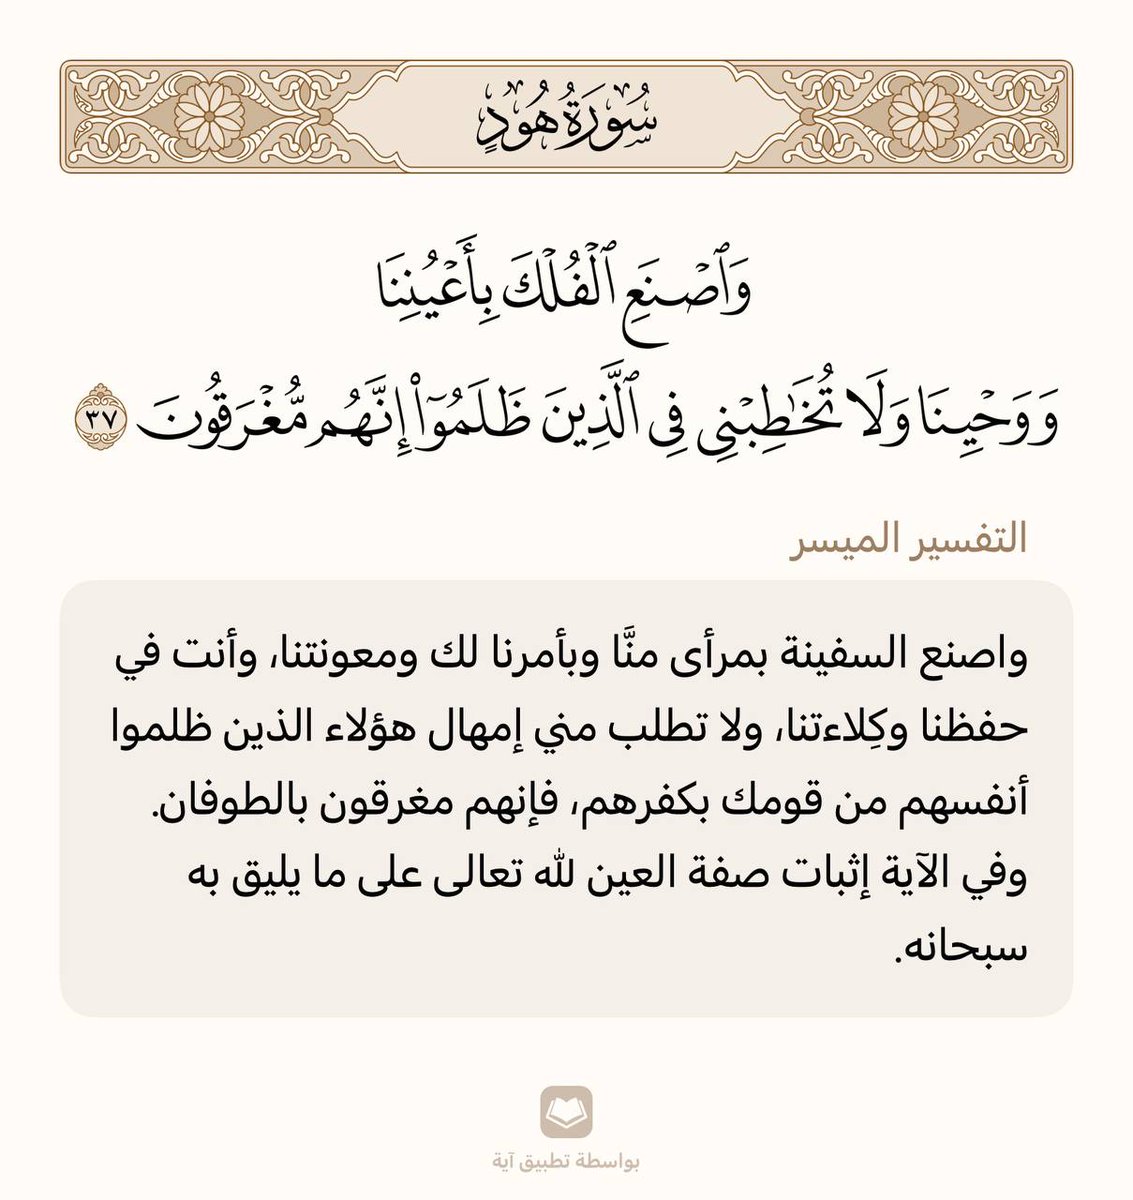 سُورَةُ هُودٍ
وَٱصۡنَعِ ٱلۡفُلۡكَ بِأَعۡيُنِنَا
وَوَحۡيِنَا وَلَا تُخَٰطِبۡنِي فِي ٱلَّذِينَ ظَلَمُوٓاْ إِنَّهُم مُّغۡرَقُونَ ٣٧
التفسير الميسر
واصنع السفينة بمرأى منَّا وبأمرنا لك ومعونتنا، وأنت في
حفظنا وكِلاءتنا، ولا تطلب مني إمهال هؤلاء الذين ظلموا
أنفسهم من قومك بكفرهم، فإنهم مغرقون بالطوفان.
وفي الآية إثبات صفة العين لله تعالى على ما يليق به
سبحانه.
بواسطة تطبيق آية